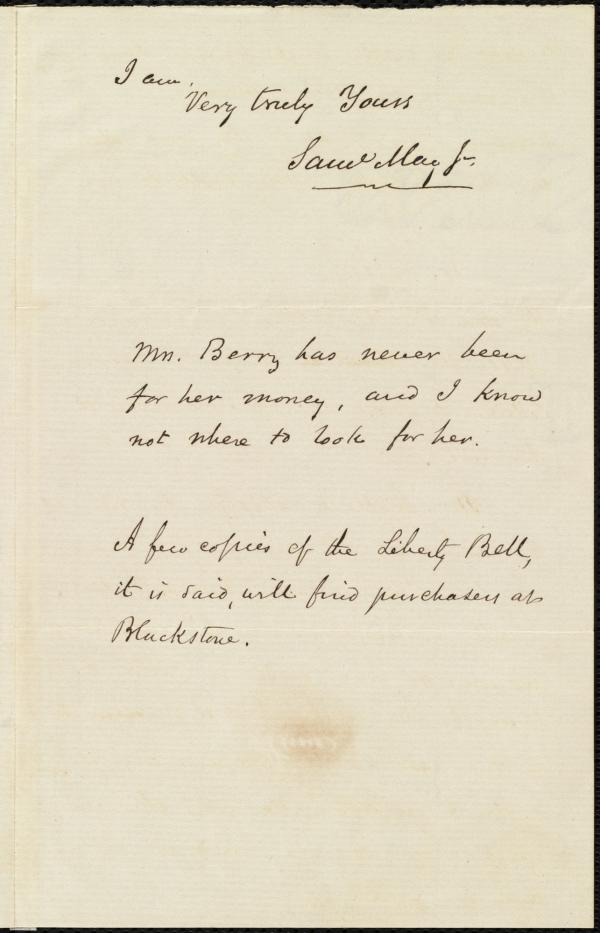 I am,
Very truly Yours
Saml May Jr.
Mrs. Berry has never been
for her money, and I know
not where to look for her.
A few copies of the Liberty Bell,
it is said, will find purchasers at
Blackstone.